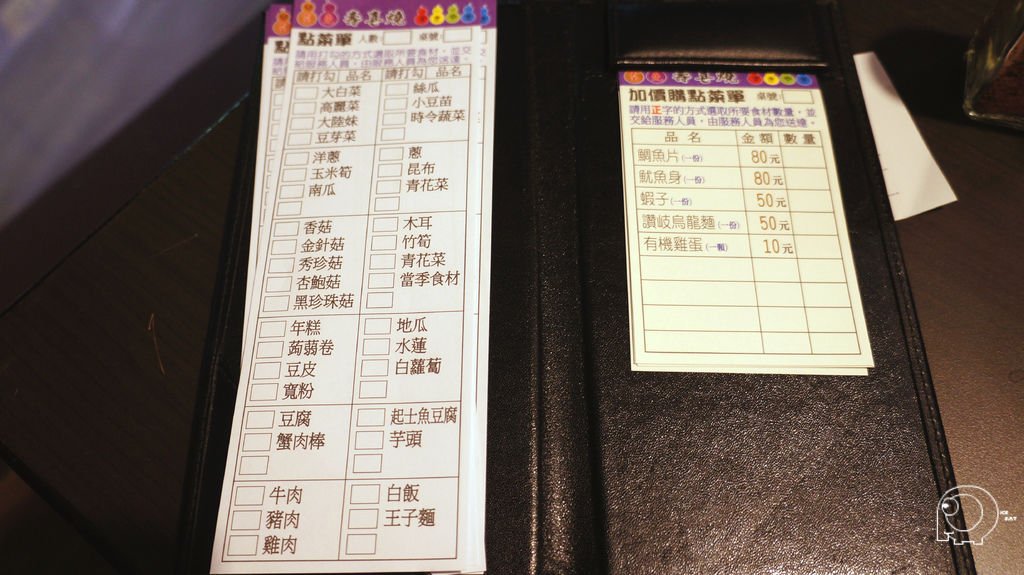 壽喜燒
點菜單 人數: 桌號:
請用打勾的方式選取所要食材，並交
給服務人員，由服務人員為您送達。
請打勾 品名 請打勾 品名
大白菜 絲瓜
高麗菜 小豆苗
大陸妹 時令蔬菜
豆芽菜
洋蔥 蔥
玉米筍 昆布
南瓜 青花菜
香菇 木耳
金針菇 竹筍
秀珍菇 青花菜
杏鮑菇 當季食材
黑珍珠菇
年糕 地瓜
蒟蒻卷 水蓮
豆皮 白蘿蔔
寬粉
豆腐 起士魚豆腐
蟹肉棒 芋頭
牛肉 白飯
豬肉 王子麵
雞肉
壽喜燒
加價購點菜單 桌號:
請用正字的方式選取所要食材數量，並
交給服務人員，由服務人員為您送達。
品名 金額 數量
鯛魚片(一份) 80元
魷魚身(一份) 80元
蝦子(一份) 50元
讚岐烏龍麵(一份) 50元
有機雞蛋(一顆) 10元